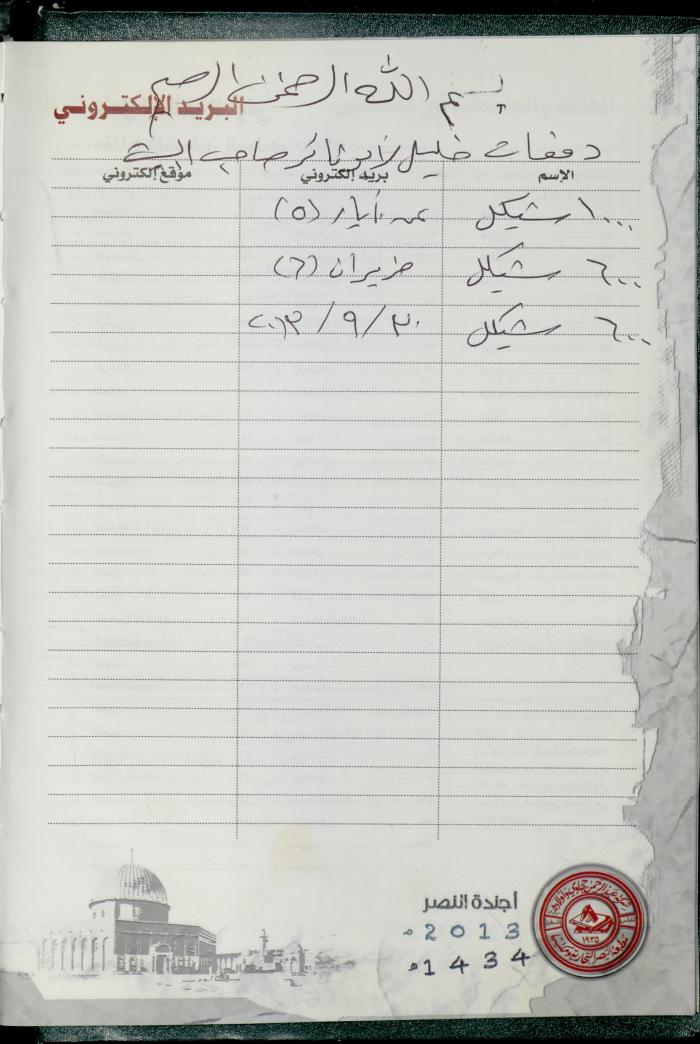 بسم الله الرحمن الرحيم
البريد الإلكتروني
دفعات خليل لأبو ثائر صاحب البيت
الإسم بريد إلكتروني موقع إلكتروني
١٠٠٠ شيكل عن أيار (٥)
٦٠٠ شيكل حزيران (٦)
٦٠٠ شيكل ٣٠/٩/٢٠١٣
أجندة النصر
2013م
1434هـ
١٩٣٥